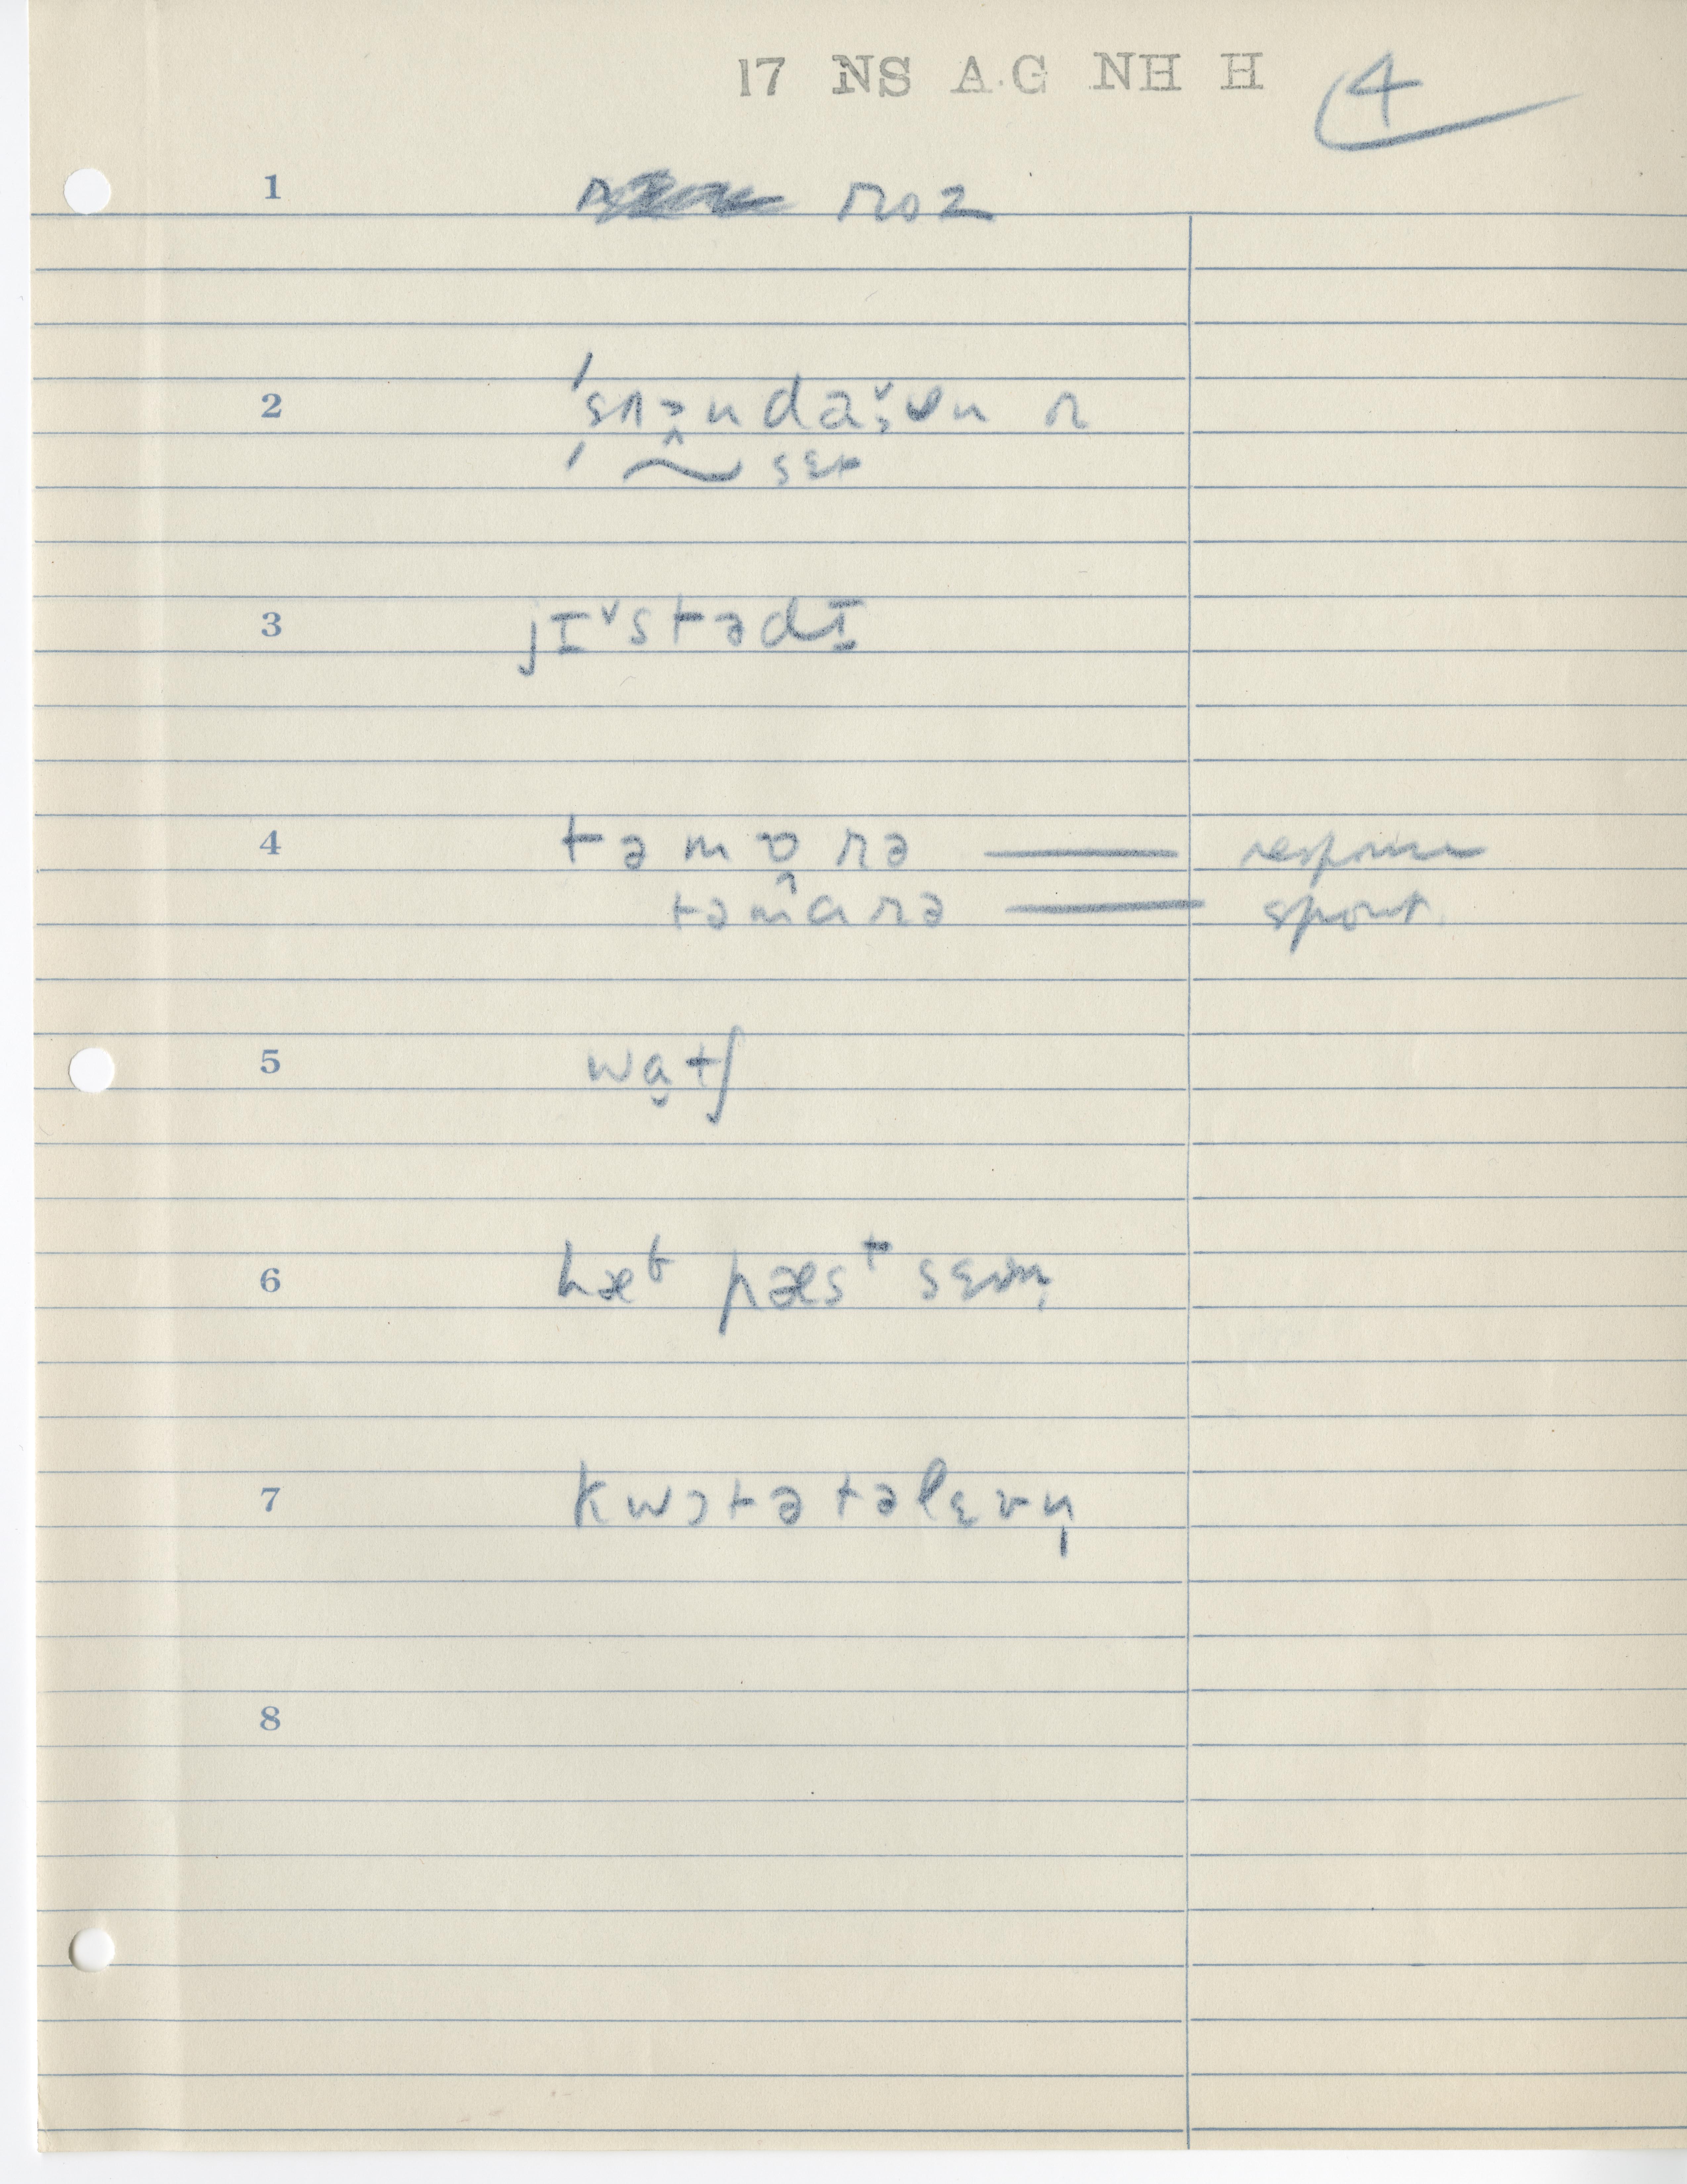 17 NS A.G NH H 4
1 roz
2 'sʌənda˅ɪn ɚ
' ~ sɛt
3 jɪ˅stədɪ
4 təmɒrə —— response
təmɑrə —— spont.
5 wɑtʃ
6 hæf pæsᵗ sɛvm̩
7 kwɔtətəlɛvn̩
8